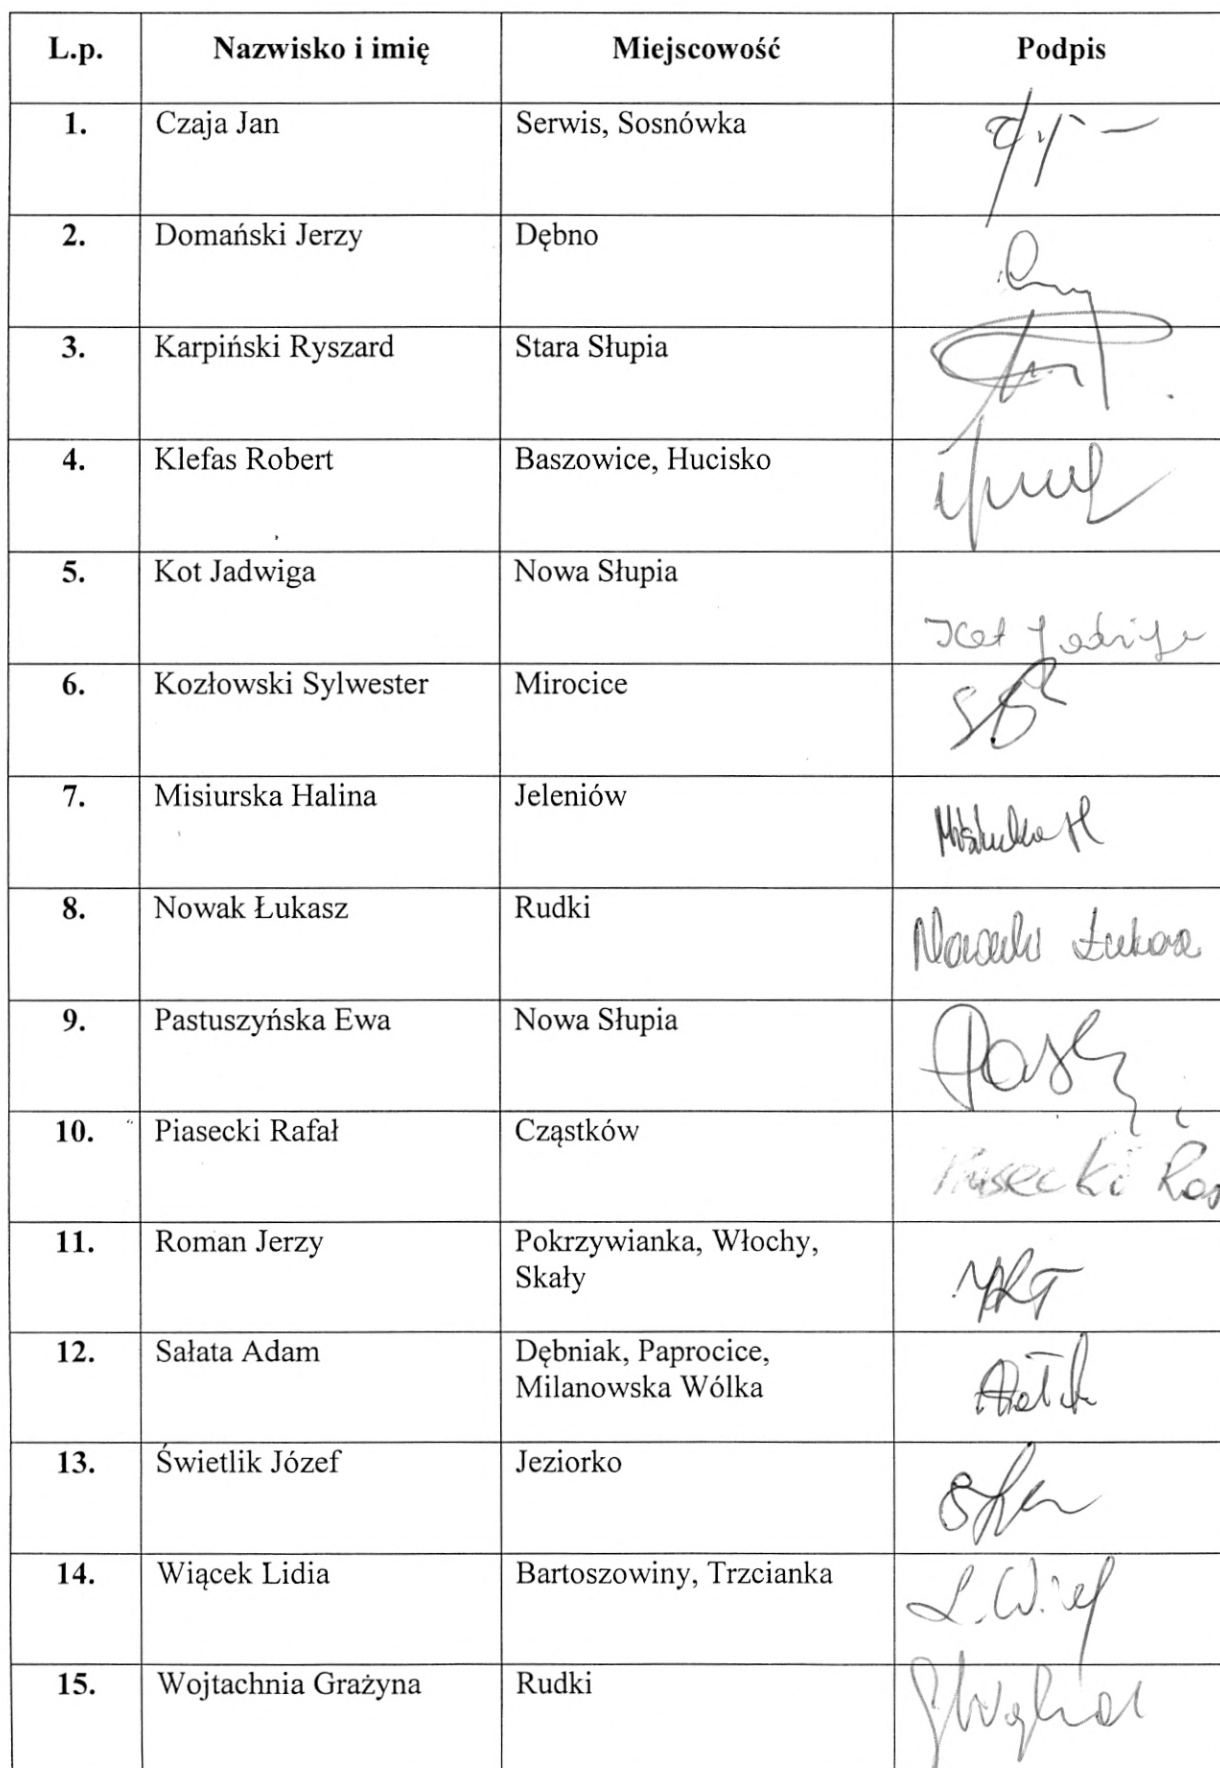 L.p. Nazwisko i imię Miejscowość Podpis
1. Czaja Jan Serwis, Sosnówka
2. Domański Jerzy Dębno
3. Karpiński Ryszard Stara Słupia
4. Klefas Robert Baszowice, Hucisko
5. Kot Jadwiga Nowa Słupia
Kot Jadwiga
6. Kozłowski Sylwester Mirocice
7. Misiurska Halina Jeleniów
8. Nowak Łukasz Rudki
Nowak Łukasz
9. Pastuszyńska Ewa Nowa Słupia
10. Piasecki Rafał Cząstków
Piasecki
11. Roman Jerzy Pokrzywianka, Włochy,
Skały
12. Sałata Adam Dębniak, Paprocice,
Milanowska Wólka
13. Świetlik Józef Jeziorko
14. Wiącek Lidia Bartoszowiny, Trzcianka
15. Wojtachnia Grażyna Rudki